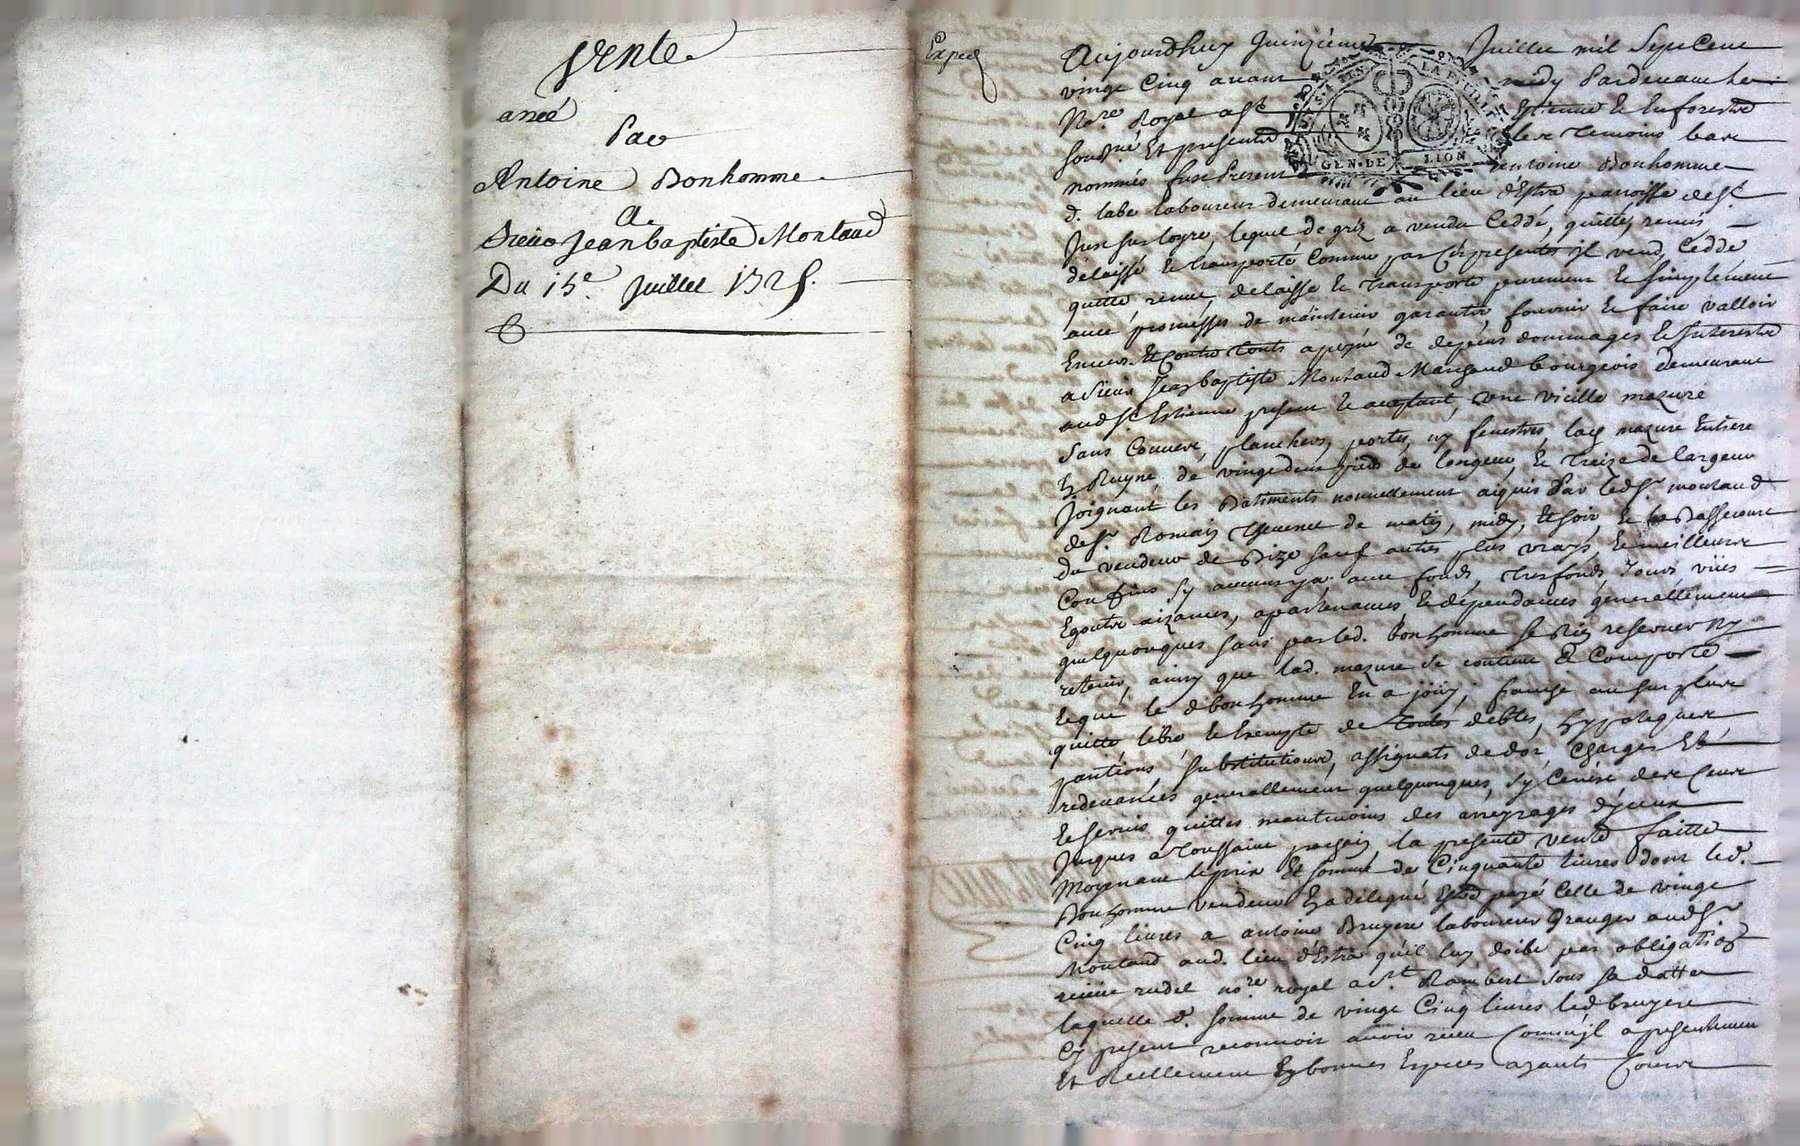 Vente
année
Par
Antoine Bonhomme
A
Sieur Jeanbaptiste Montaud
Du 15e Juillet 1725.
Exped
Aujourdhuy quinzieme Juillet mil sept Cent
vingt Cinq avant midy Pardevant le
Nore Royal a St Estienne Et en forest
soubsné Et presents les temoins bas
nommés fust present antoine Bonhomme
d. labe laboureur demeurant au lieu d'Estra parroisse de St
Just sur loyre, lequel de gré a vendu Ceddé, quitté, remis
délaissé et transporté Comme par Ces presentes il vend, Cedde
quitte remet, delaisse Et transporte purement Et simplement
avec promesses de maintenir garantir fournir Et faire valloir
Envers Et Contre touts a peyne de depens dommages Et Interests
a Sieur Jeanbaptiste Montaud Marchand bourgeois demeurant
aud St Estienne present Et acceptant, une vieille mazure
sans Couvert, planchers, portes, ny fenestres, lad mazure Entiere
En Ruyne de vingt deux pieds de longeur, Et treize de largeur
Joignant les Batiments nouvellement aquis Par led Sr montaud
de Sr Romain Thevenet de matin, midy, Et soir, Et la Bassecourt
du vendeur de Bize sauf autres plus vrays, Et meilleurs
Confins sy aucuns y a avec fonds, tresfonds, Jours vües
Egouts aizances, apartenances Et dépendances generallement
quelquonques sans par led. bonhomme se Rien reserver ny
retenir, ainsy que lad. mazure se contient Et Comporte
Et que le d bonhomme En a jouy; franche au surplus
quitte libre Et Exempte de toutes debtes, hypoteques
pantions, substitutions, assignats de dot, Charges Et
redevances generallement quelquonques, sy Ce n'est des Cens
Et servis quittes neantmoins des arreyrages d'yceux
Jusques a Toussaint prochain la presente vente faitte
Moyenant le prix Et somme de Cinquante livres dont led.
Bonhomme vendeur En a délegué Et payé Celle de vingt
Cinq livres a antoine Bruyere laboureur Granger aud Sr
Montaud aud. lieu d'Estra qu'il luy doibt par obligation
reçüe rudel nore royal a St Rambert sous sa datte
laquelle d. somme de vingt Cinq livres led bruyere
Cy present reconnoit avoir receu Comme il a presentement
Et Reellement En bonnes Especes ayants Cours
GEN. DE LION